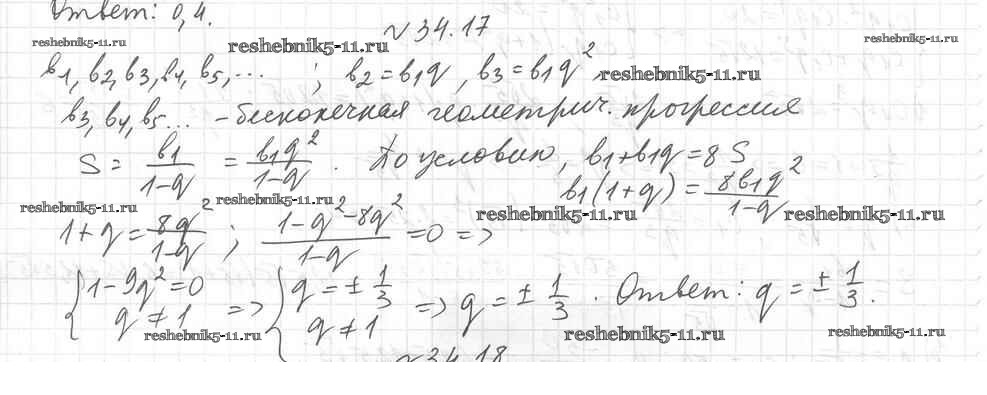 Ответ: 0,4.
№34.17
reshebnik5-11.ru reshebnik5-11.ru reshebnik5-11.ru
b1, b2, b3, b4, b5, ... ; b2 = b1q, b3 = b1q²
reshebnik5-11.ru
b3, b4, b5 ... - бесконечная геометрич. прогрессия
S = b1/(1-q) = b1q²/(1-q). По условию, b1 + b1q = 8S
b1(1+q) = 8b1q²/(1-q)
reshebnik5-11.ru reshebnik5-11.ru reshebnik5-11.ru reshebnik5-11.ru
1+q = 8q²/(1-q) ; (1-q²-8q²)/(1-q) = 0 =>
{1-9q²=0 q≠1 => {q=±1/3 q≠1 => q=±1/3. Ответ: q=±1/3.
reshebnik5-11.ru reshebnik5-11.ru reshebnik5-11.ru
№34.18